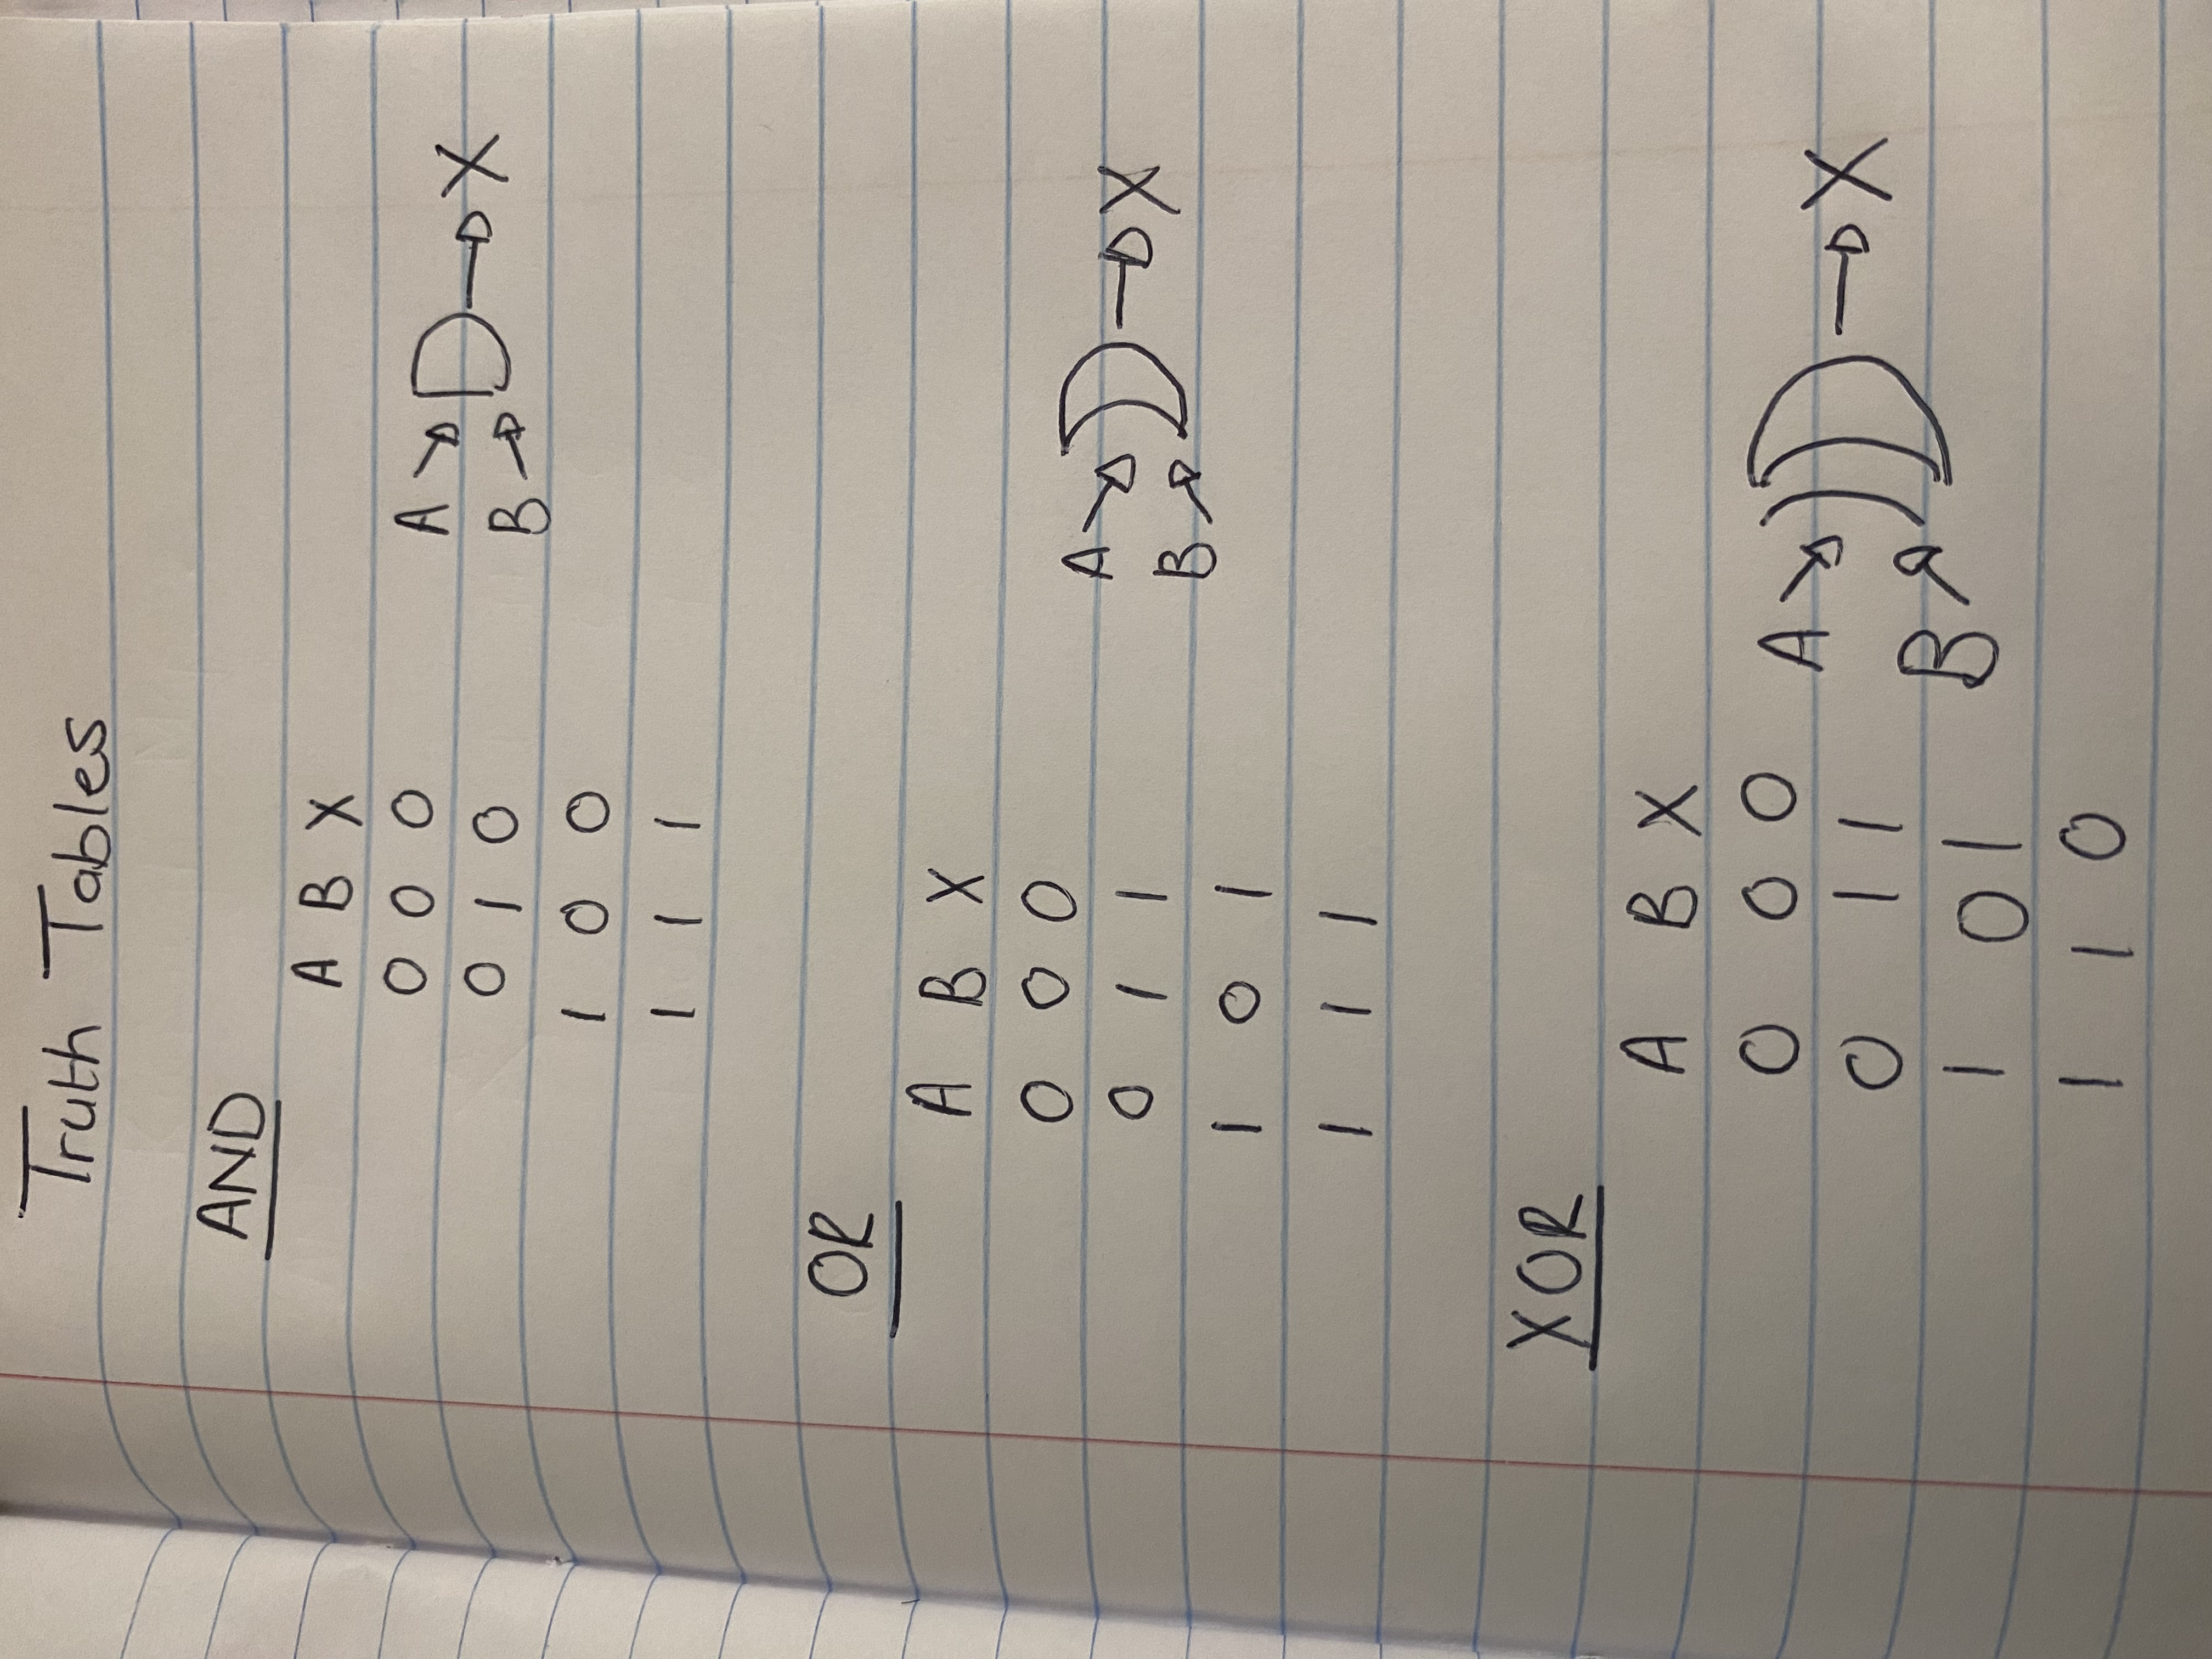 Truth Tables
AND
A B X
0 0 0
0 1 0
1 0 0
1 1 1
A
B
X
OR
A B X
0 0 0
0 1 1
1 0 1
1 1 1
A
B
X
XOR
A B X
0 0 0
0 1 1
1 0 1
1 1 0
A
B
X